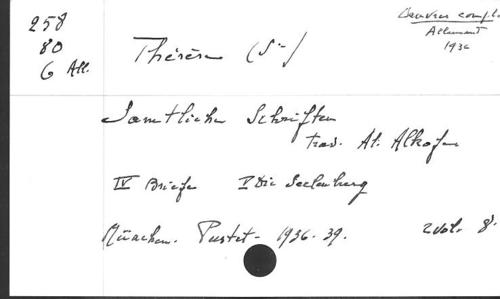 258
80
6 All.
Oeuvres compl.
Allemand
1936
Thérèse (Ste)
Saemtliche Schriften
trad. At. Alkofer
IV Briefe V Die Seelenburg
München. Pustet - 1936-39. 2 vol. 8.